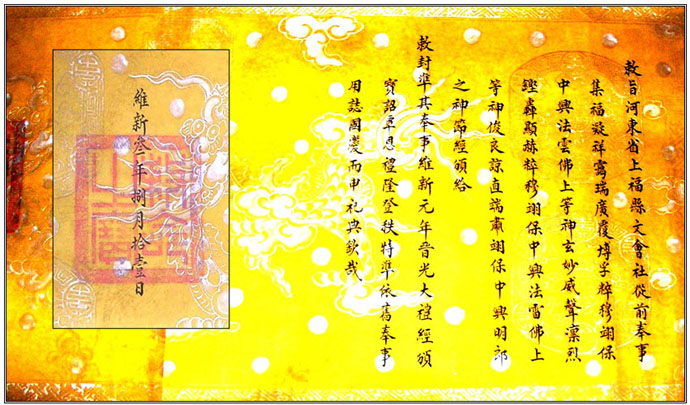 敕旨河東省上福縣文會社從前奉事
集福凝祥霱瑞廣覆博孚粹穆翊保
中興法雲佛上等神玄妙威聲凛烈
轟顯赫粹穆翊保中興法雷佛上
等神俊良諒直端肅翊保中興明郎
之神節經頒給
敕封準其奉事維新元年晉光大禮經頒
寶詔覃恩禮隆登秩特準依舊奉事
用誌國慶而申祀典欽哉
維新叁年捌月拾壹日